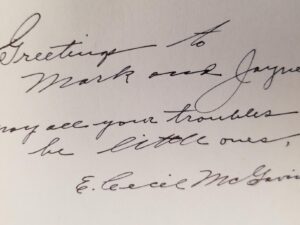 Greetings to
Mark and Jayne
may all your troubles
be little ones,
E. Cecil McGavin